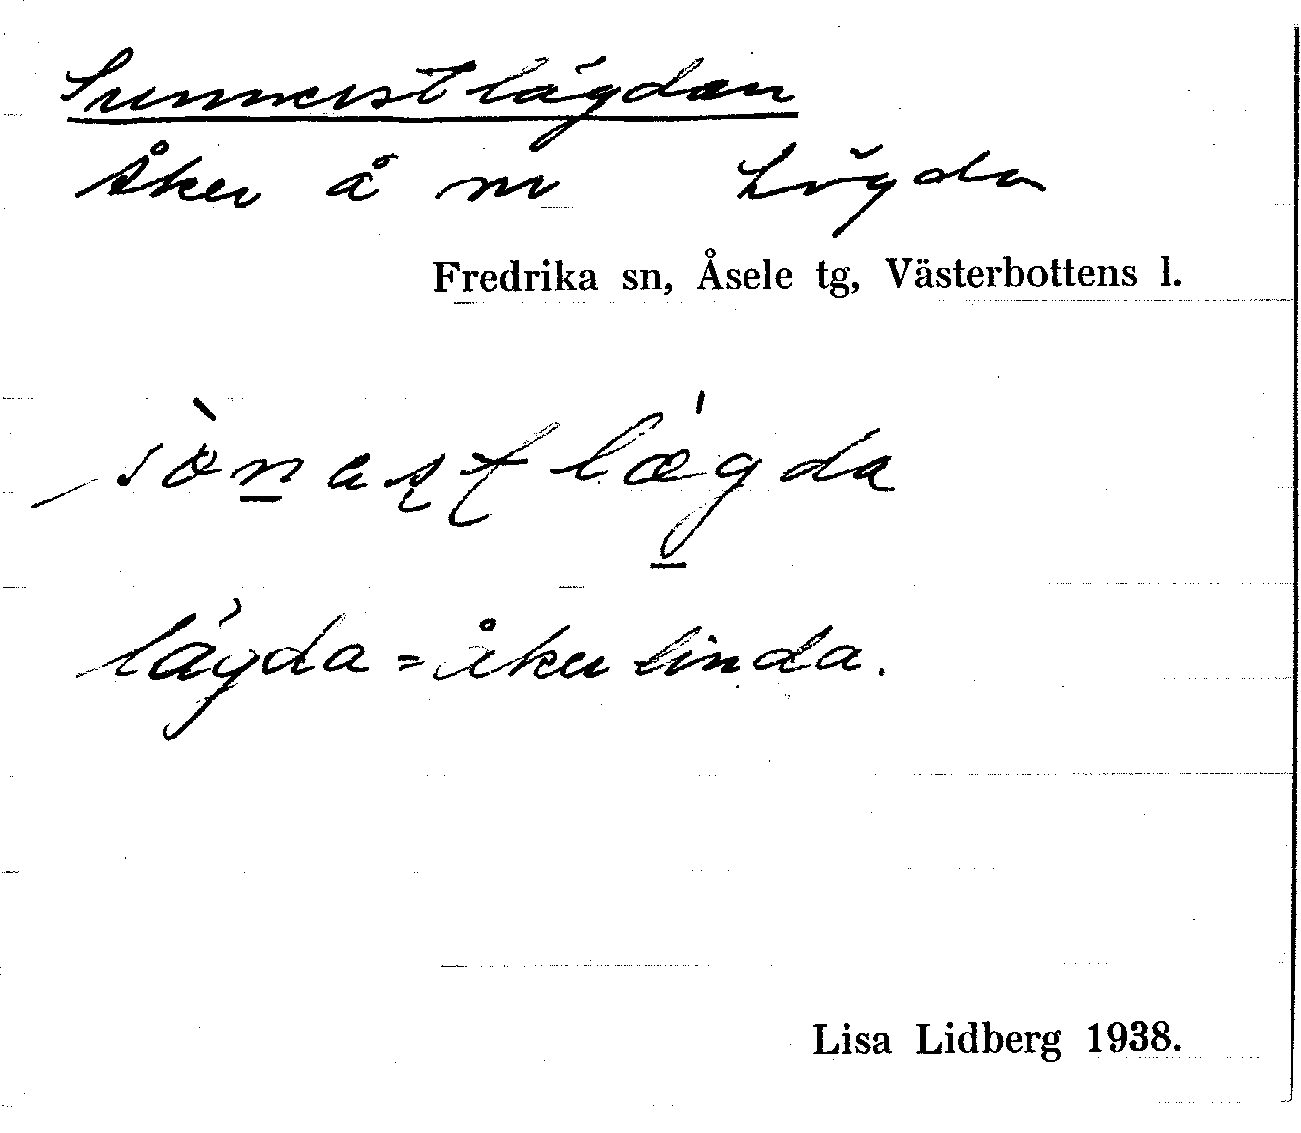 Sunnerstlägdan
Åker å nr Lögda
Fredrika sn, Åsele tg, Västerbottens l.
sònaʂt lǽgda
lägda = åkerlinda.
Lisa Lidberg 1938.